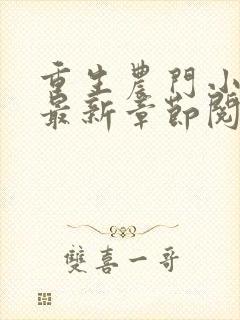 重生農門小
最新章節閱
雙喜一哥